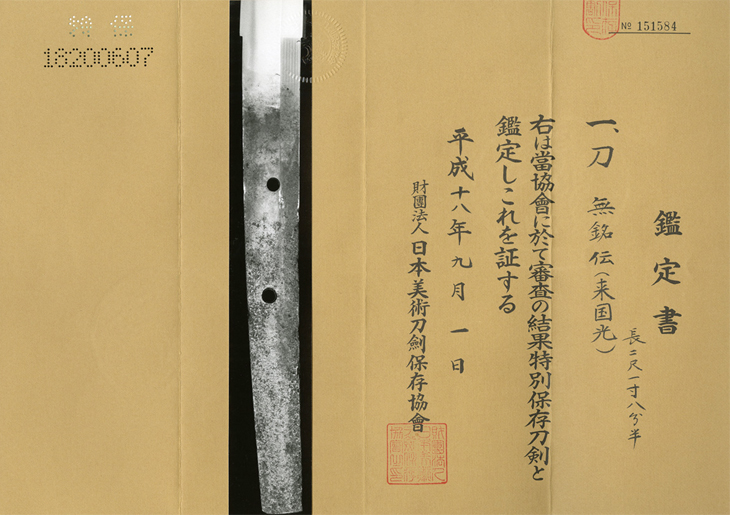 鑑定書
一、刀 無銘 伝(来国光)
長二尺一寸八分半
右は當協會に於て審査の結果特別保存刀剣と
鑑定しこれを証する
平成十八年九月一日
財團法人 日本美術刀劍保存協會
№ 151584
18200607